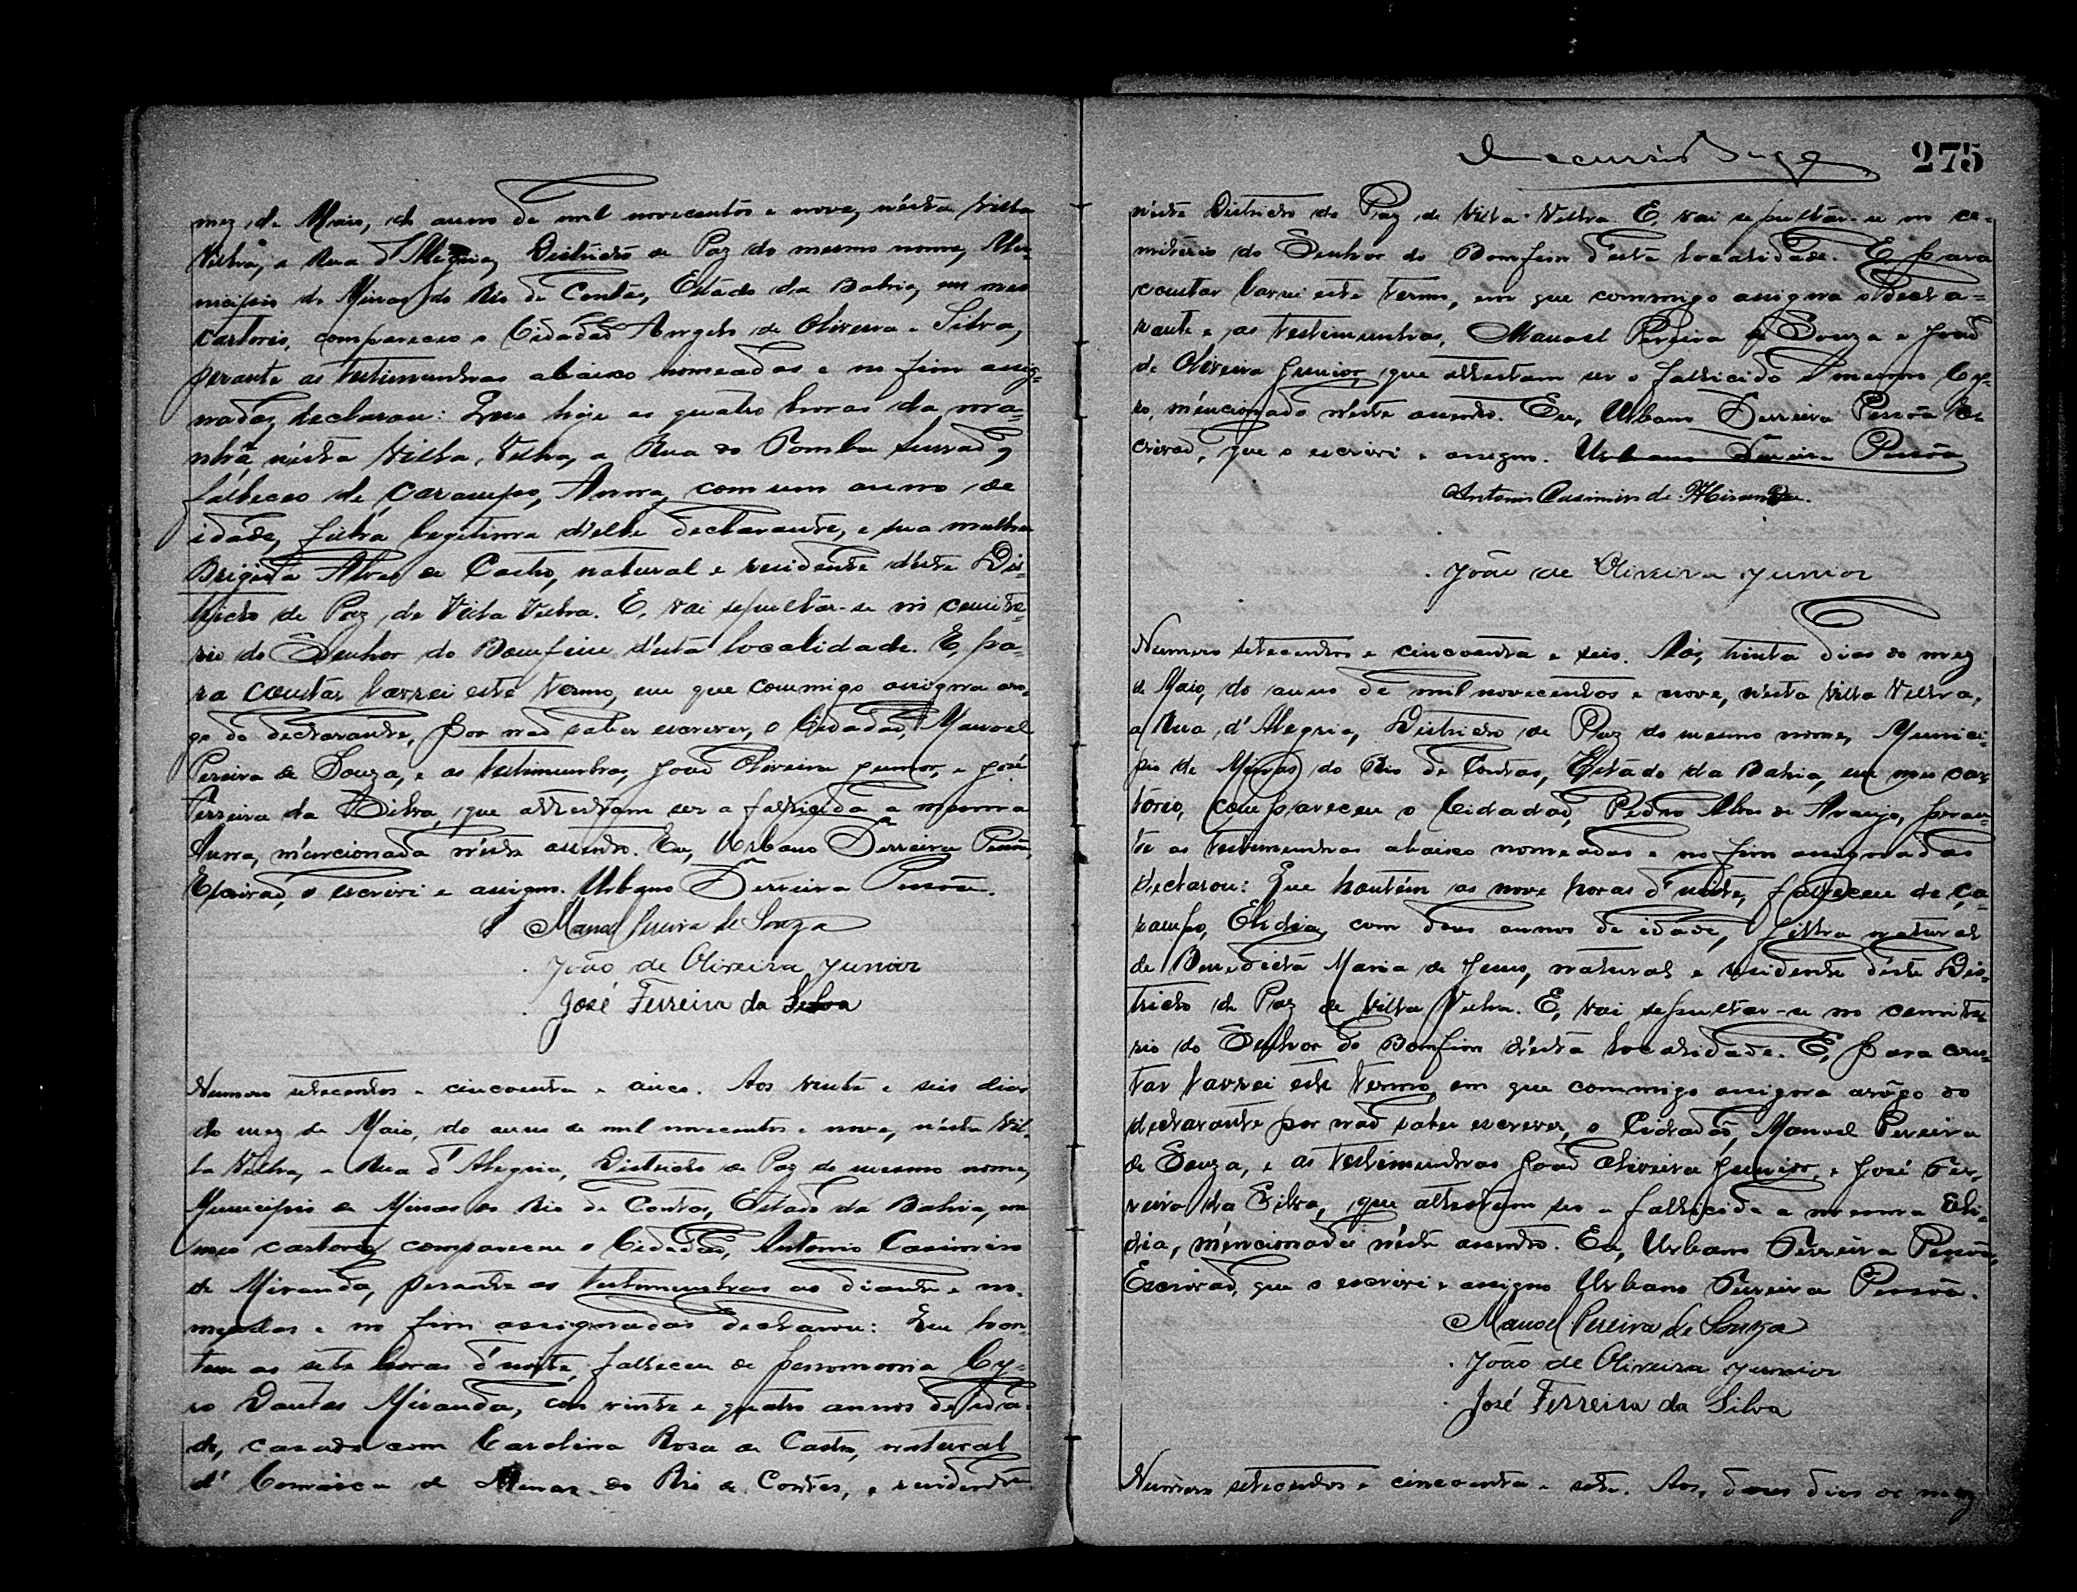 mez de Maio, do anno de mil novecentos e nove, nésta Villa
Velha, a Rua d'Alegria, Districto de Paz do mesmo nome, Mu-
nicipio de Minas do Rio de Contas, Estado da Bahia, em meu
cartorio, compareceo o Cidadão Angelo de Oliveira e Silva,
perante as testimunhas abaixo nomeadas e no fim assig-
nadas, declarou: Que hoje as quatro horas da ma-
nhã nésta Villa Velha, a Rua do Pomba
falleceo de Carampo, Anna, com um anno de
idade, filha legitima d'elle declarante, e sua mulher
Brigida Alves de Castro, natural e residente déste Dis-
tricto de Paz de Villa Velha. E, vai sepultar-se no cemite-
rio do Senhor do Bomfim désta localidade. E, pa-
ra constar lavrei este termo, em que commigo assigna aro-
go do declarante, por não saber escrever, o Cidadão, Manoel
Pereira de Souza, e as testimunhas, João Oliveira Junior, e José
Ferreira da Silva, que attestam ser a fallicida a mesma
Anna, mencionada néste assento. Eu, Urbano Ferreira Pessôa,
Escrivão, o escrivi e assigno. Urbano Ferreira Pessôa.
Manoel Pereira de Souza
João de Oliveira Junior
José Ferreira da Silva
Numero setecentos e cincoenta e cinco. Aos vinte e seis dias
do mez de Maio, do anno de mil novecentos e nove, nésta Vil-
la Velha, a Rua d'Alegria, Districto de Paz do mesmo nome,
Municipio de Minas do Rio de Contas, Estado da Bahia, em
meu cartorio compareceu o Cidadão, Antonio Casimiro
de Miranda, perante as testimunhas ao diante e no-
meadas e no fim assignadas declarou: Que hon-
tem as sete horas d'noite, falleceu de penomonia Cy-
ro Dantas Miranda, com vinte e quatro annos de ida-
de, casado com Carolina Rosa de Castro, natural
d' Comarca de Minas do Rio de Contas, e residente
275
néste Districto de Paz de Villa Velha. E, vai sepultar-se no ce-
miterio do Senhor do Bomfim d'esta localidade. E, para
constar lavrei este termo, em que commigo assigna o decla-
rante e as testimunhas, Manoel Pereira de Souza e João
de Oliveira Junior, que attestam ser o fallicido o mesmo Cy-
ro, mencionado néste assento. Eu, Urbano Ferreira Pessôa Es-
crivão, que o escrivi e assigno. Urbano Ferreira Pessôa
Antonio Casimiro de Miranda.
João de Oliveira Junior
Numero setecentos e cincoenta e seis. Aos, trinta dias do mez
de Maio, do anno de mil novecentos e nove, nésta Villa Velha,
a Rua d'Alegria, Districto de Paz do mesmo nome, Munici-
pio de Minas do Rio de Contas, Estado da Bahia, em meu car-
tório, compareceu o Cidadão, Pedro Alves de Araujo, peran-
te as testimunhas abaixo nomeadas e no fim assignadas
declarou: Que hontém as nove horas d'noite, falleceu de ca-
rampo, Elidia, com dous annos de idade, filha natural
de Benedicta Maria de Jesus, natural e residente déste Dis-
tricto de Paz de Villa Velha. E, vai sepultar-se no cemite-
rio do Senhor do Bomfim désta localidade. E, para cons-
tar lavrei este termo em que commigo assigna arôgo do
declarante por não saber escrever, o Cidadão, Manoel Pereira
de Souza, e as testimunhas João Oliveira Junior, e José Fer-
reira da Silva, que attestam ser a fallicida a mesma Eli-
dia, mencionada néste assento. Eu, Urbano Ferreira Pessôa,
Escrivão, que o escrivi e assigno Urbano Ferreira Pessôa.
Manoel Pereira de Souza
João de Oliveira Junior
José Ferreira da Silva
Numero setecentos e cincoenta e sete. Aos, dous dias do mez